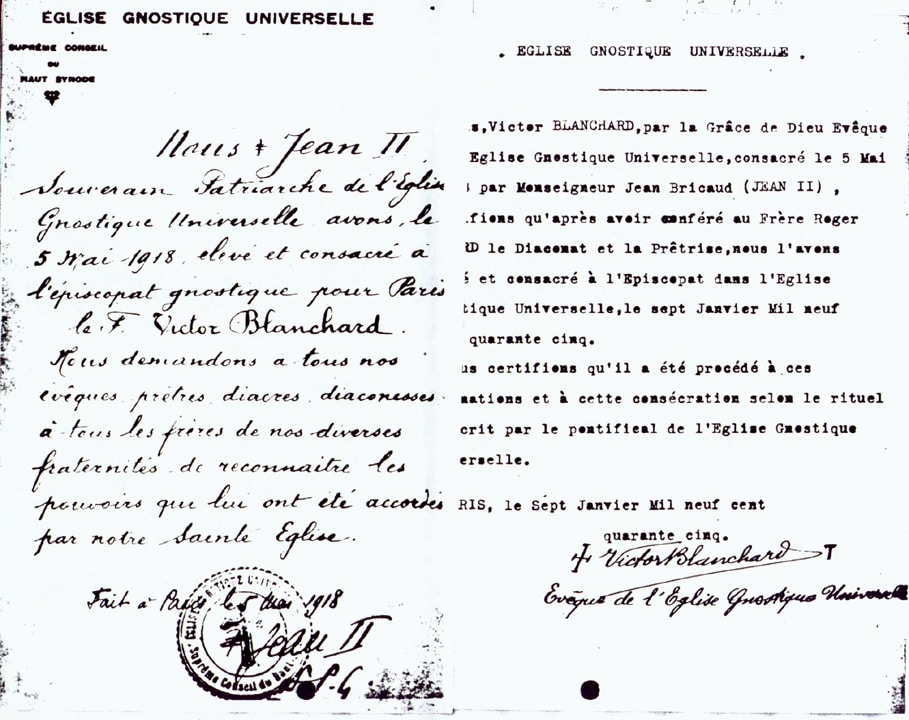 ÉGLISE GNOSTIQUE UNIVERSELLE
SUPRÊME CONSEIL
DU
HAUT SYNODE
Nous ‡ Jean II
Souverain Patriarche de l'Eglise
Gnostique Universelle avons, le
5 Mai 1918, elevé et consacré à
l'épiscopat gnostique pour Paris
le F. Victor Blanchard.
Nous demandons a tous nos
évêques, prêtres, diacres, diaconesses
à tous les frères de nos diverses
fraternités de reconnaitre les
pouvoirs qui lui ont été accordés
par notre Sainte Eglise.
Fait à Paris, le 5 Mai 1918
Jean II
Suprême Conseil du Haut
. EGLISE GNOSTIQUE UNIVERSELLE .
s,Victor BLANCHARD,par la Grâce de Dieu Evêque
Eglise Gnostique Universelle,consacré le 5 Mai
par Monseigneur Jean Bricaud (JEAN II) ,
fions qu'après avoir conféré au Frère Roger
RD le Diaconat et la Prêtrise,nous l'avons
é et consacré à l'Episcopat dans l'Eglise
tique Universelle,le sept Janvier Mil neuf
quarante cinq.
us certifions qu'il a été procédé à ces
nations et à cette consécration selon le rituel
crit par le pontifical de l'Eglise Gnostique
erselle.
RIS, le Sept Janvier Mil neuf cent
quarante cinq.
‡ Victor Blanchard T
Evêque de l'Eglise Gnostique Universelle